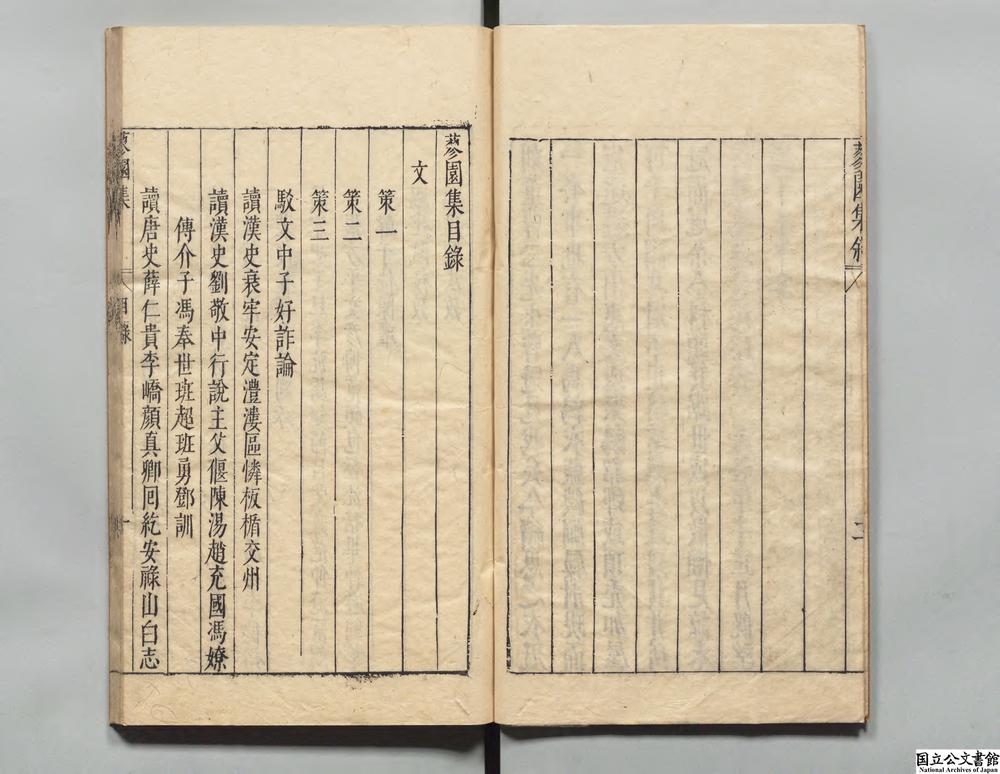 蓼園集敘
二
蓼園集目錄
文
策一
策二
策三
駁文中子好詐論
讀漢史哀牢安定澧漊區憐板楯交州
讀漢史劉敬中行說主父偃陳湯趙充國馮嫽
傅介子馮奉世班超班勇鄧訓
讀唐史薛仁貴李嶠顏真卿回紇安祿山白志
蓼園集
目錄
一
国立公文書館
National Archives of Japan